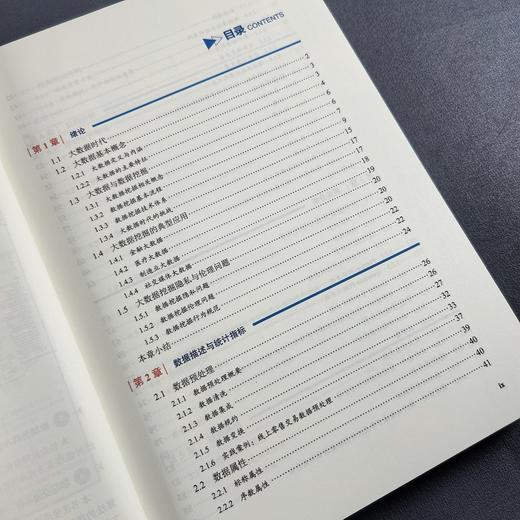 目录 CONTENTS
第1章 绪论
1.1 大数据时代 2
1.2 大数据基本概念 3
1.2.1 大数据定义与内涵 3
1.2.2 大数据的主要特征
1.3 大数据与数据挖掘
1.3.1 大数据挖掘相关概念
1.3.2 数据挖掘基本流程
1.3.3 数据挖掘技术体系
1.3.4 大数据时代的挑战
1.4 大数据挖掘的典型应用
1.4.1 金融大数据
1.4.2 医疗大数据
1.4.3 制造业大数据
1.4.4 社交媒体大数据
1.5 大数据挖掘隐私与伦理问题
1.5.1 数据挖掘隐私问题
1.5.2 数据挖掘伦理问题
1.5.3 数据挖掘行为规范
本章小结 24
第2章 数据描述与统计指标
2.1 数据预处理 26
2.1.1 数据预处理概要 26
2.1.2 数据清洗 27
2.1.3 数据集成 32
2.1.4 数据规约 33
2.1.5 数据变换 37
2.1.6 实践案例：线上零售交易数据预处理 39
2.2 数据属性 40
2.2.1 标称属性 40
2.2.2 序数属性 41
ix